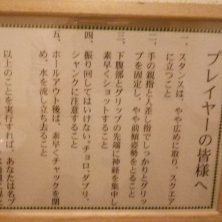 プレイヤーの皆様へ
一、スタンスは、やや広めに取り、スクエア
に立つこと
二、手の親指と人差し指でしっかりとグリッ
プを固定し、やや前傾姿勢をとること
三、下腹部とグリップの先端に神経を集中し
素早くショットすること
四、振り回してはいけない。チョロ、ダフリ、
シャンクに注意すること
五、ホールアウト後は、素早くチャックを閉
め、水を流し立ち去ること
以上のことを実行すれば、あなたは名プ